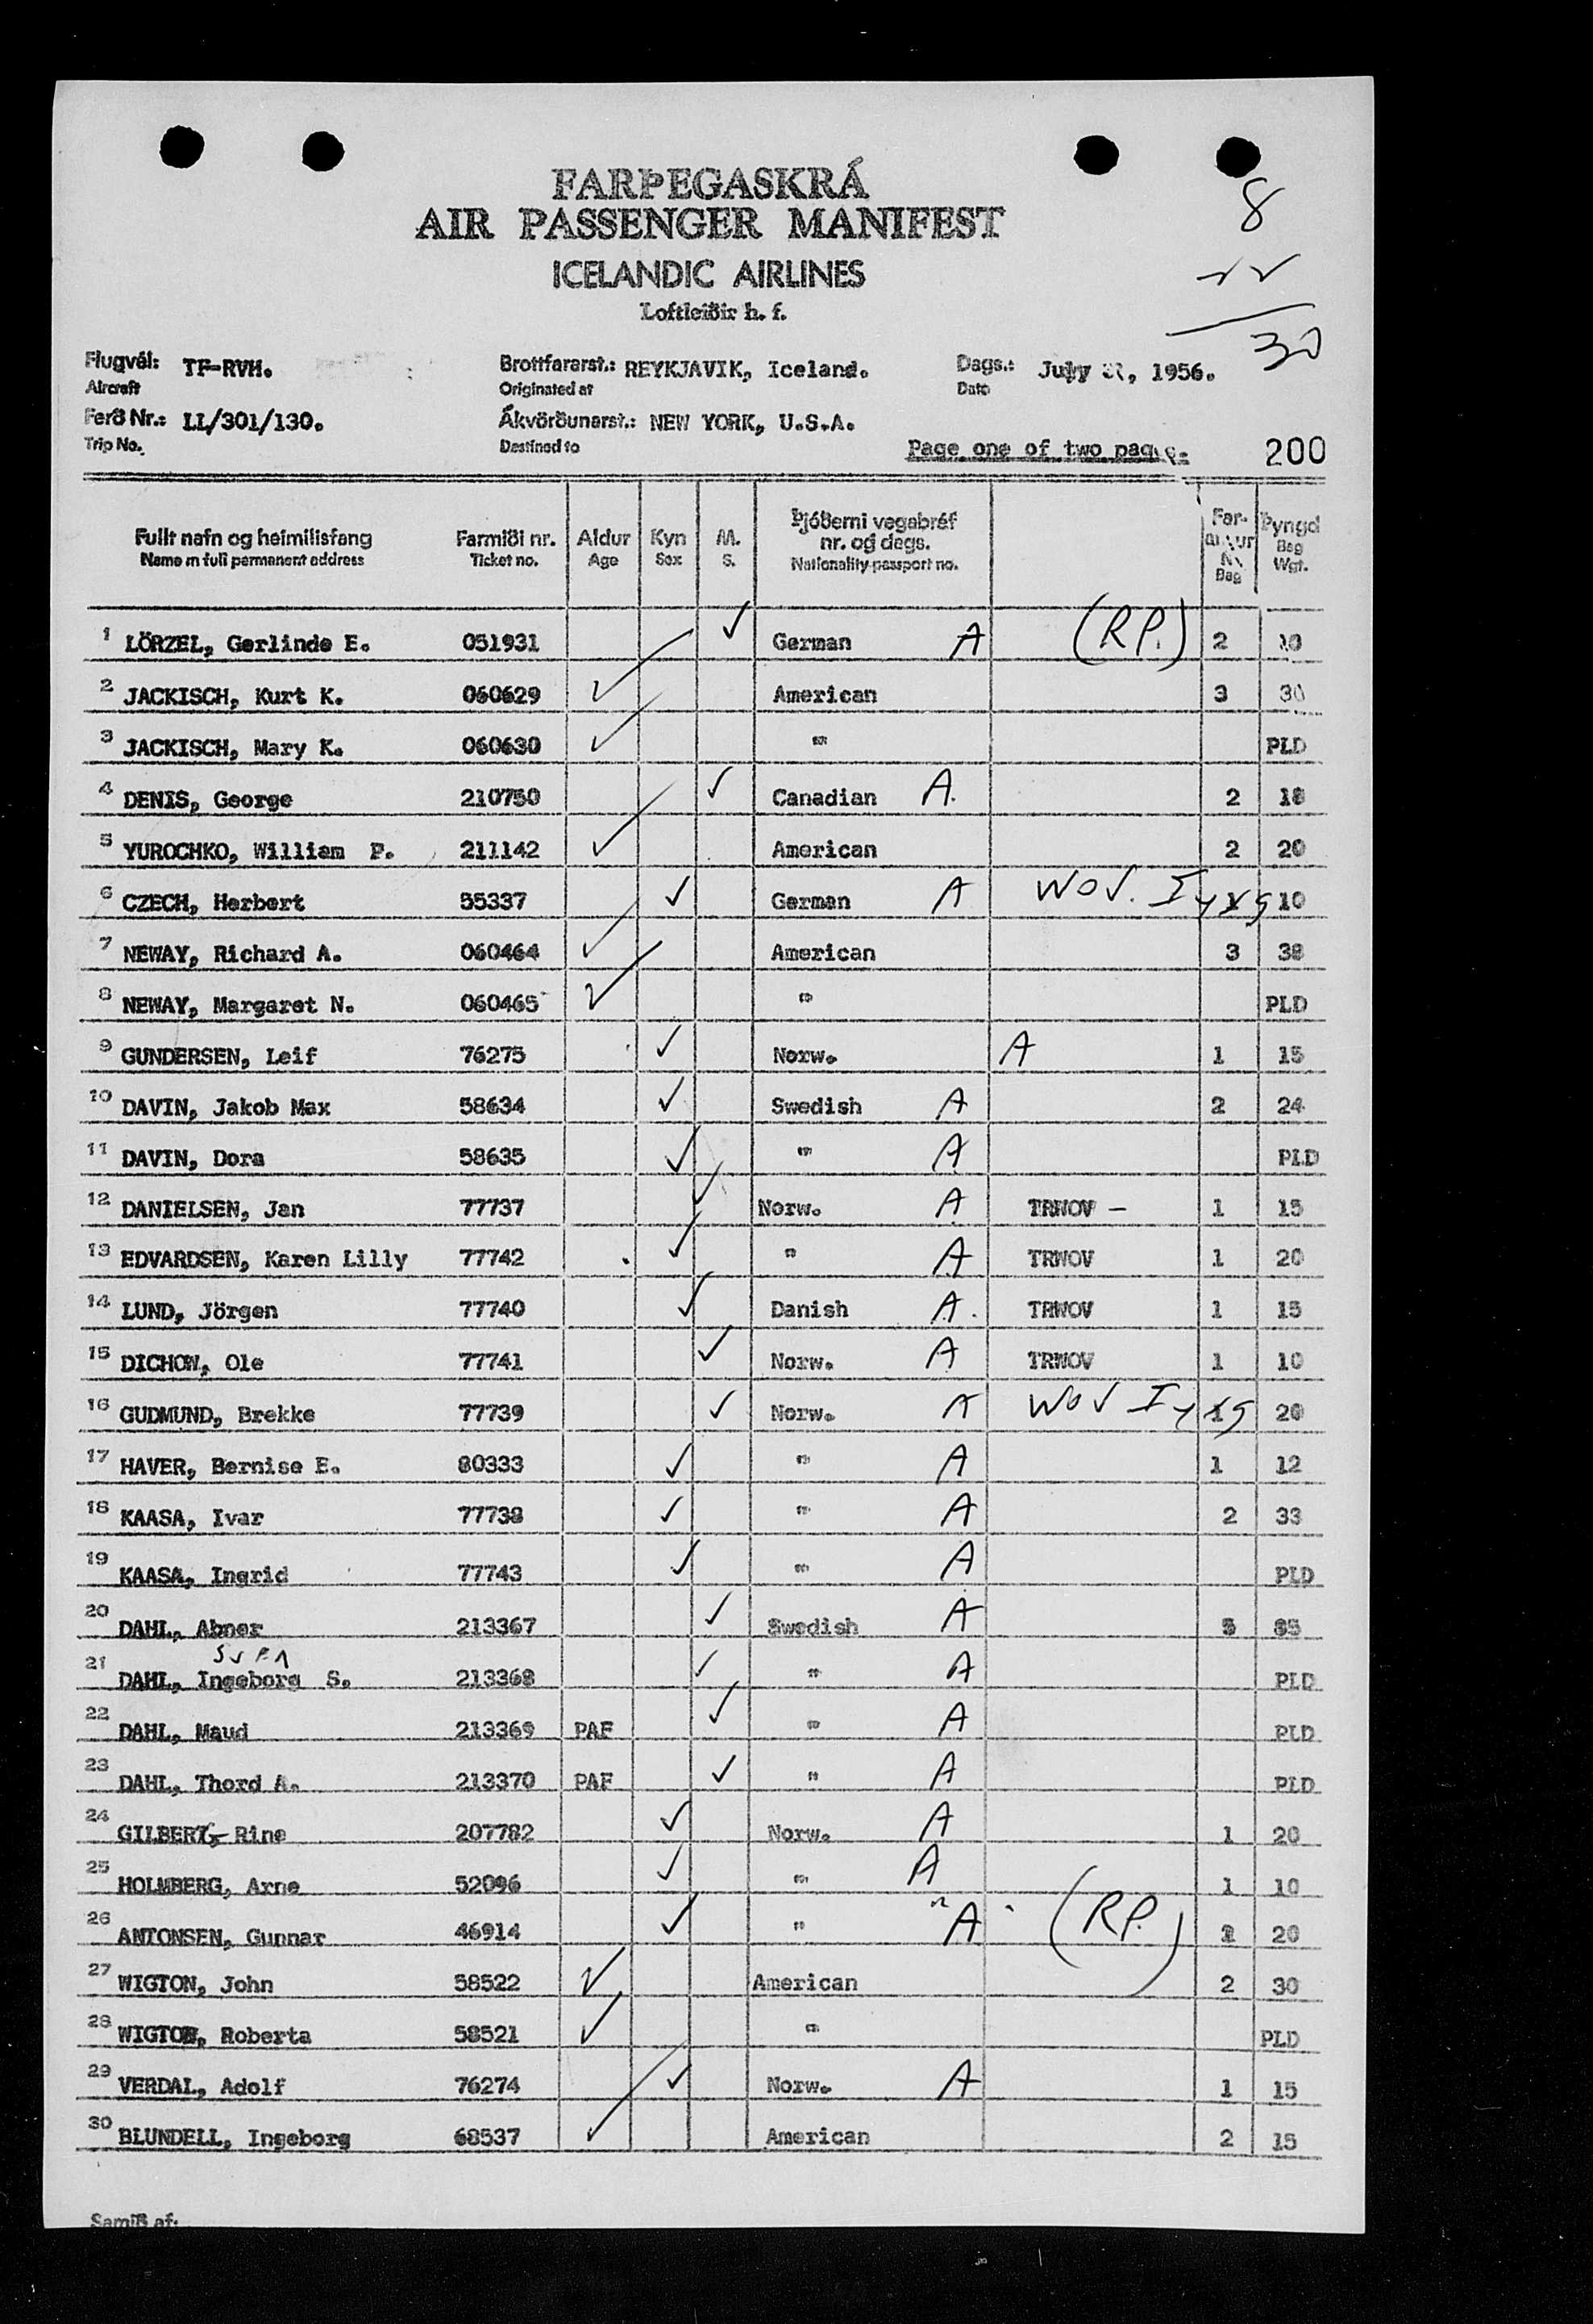 FARÞEGASKRÁ
AIR PASSENGER MANIFEST
ICELANDIC AIRLINES
Loftleiðir h. f.
8
22
30
Flugvél: TF-RVH. Brottfararst.: REYKJAVIK, Iceland. Dags.: 1956.
Aircraft Originated at Date
Ferð Nr.: LL/301/130. Ákvörðunarst.: NEW YORK, U.S.A.
Trip No. Destined to Page one of two page. 200
Fullt nafn og heimilisfang Farmiði nr. Aldur Kyn M. Þjóðerni vegabréf nr. og dags. Þyngd
Name in full permanent address Ticket no. Age Sex S. Nationality passport no. Bag Bag Wgt.
1 LÖRZEL, Gerlinde E. 051931 ✓ German A (R.P.) 2 10
2 JACKISCH, Kurt K. 060629 ✓ American 3 30
3 JACKISCH, Mary K. 060630 ✓ " PLD
4 DENIS, George 210750 ✓ Canadian A. 2 18
5 YUROCHKO, William P. 211142 ✓ American 2 20
6 CZECH, Herbert 55337 ✓ German A WOV. 10
7 NEWAY, Richard A. 060464 ✓ American 3 38
8 NEWAY, Margaret N. 060465 ✓ " PLD
9 GUNDERSEN, Leif 76275 ✓ Norw. A 1 15
10 DAVIN, Jakob Max 58634 ✓ Swedish A 2 24
11 DAVIN, Dora 58635 ✓ " A PLD
12 DANIELSEN, Jan 77737 ✓ Norw. A TRWOV - 1 15
13 EDVARDSEN, Karen Lilly 77742 ✓ " A TRWOV 1 20
14 LUND, Jörgen 77740 ✓ Danish A. TRWOV 1 15
15 DICHOW, Ole 77741 ✓ Norw. A TRWOV 1 10
16 GUDMUND, Brekke 77739 ✓ Norw. A WOV 20
17 HAVER, Bernise E. 80333 ✓ " A 1 12
18 KAASA, Ivar 77738 ✓ " A 2 33
19 KAASA, Ingrid 77743 ✓ " A PLD
20 DAHL, Abner 213367 ✓ Swedish A 5 85
21 DAHL, Ingeborg S. 213368 ✓ " A PLD
22 DAHL, Maud 213369 PAF ✓ " A PLD
23 DAHL, Thord A. 213370 PAF ✓ " A PLD
24 GILBERT, Rine 207782 ✓ Norw. A 1 20
25 HOLMBERG, Arne 52096 ✓ " A 1 10
26 ANTONSEN, Gunnar 46914 ✓ " A (R.P.) 20
27 WIGTON, John 58522 ✓ American 2 30
28 WIGTON, Roberta 58521 ✓ " PLD
29 VERDAL, Adolf 76274 ✓ Norw. A 1 15
30 BLUNDELL, Ingeborg 68537 ✓ American 2 15
Samið af: